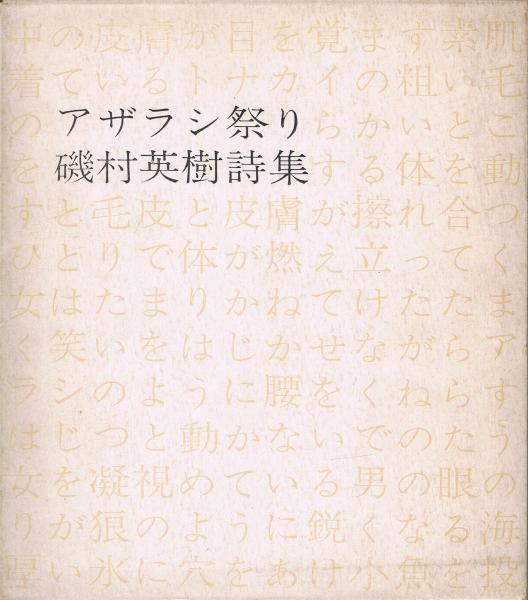 アザラシ祭り
磯村英樹詩集
中の皮膚が目を覚ます素肌
着ているトナカイの粗い毛
の らかいとこ
を する体を動
すと毛皮と皮膚が擦れ合つ
ひとりで体が燃え立ってく
女はたまりかねてけたたま
く笑いをはじかせながらア
ラシのように腰をくねらす
はじつと動かないでのたう
女を凝視めている男の眼の
りが狼のように鋭くなる海
厚い氷に穴をあけ小魚を投